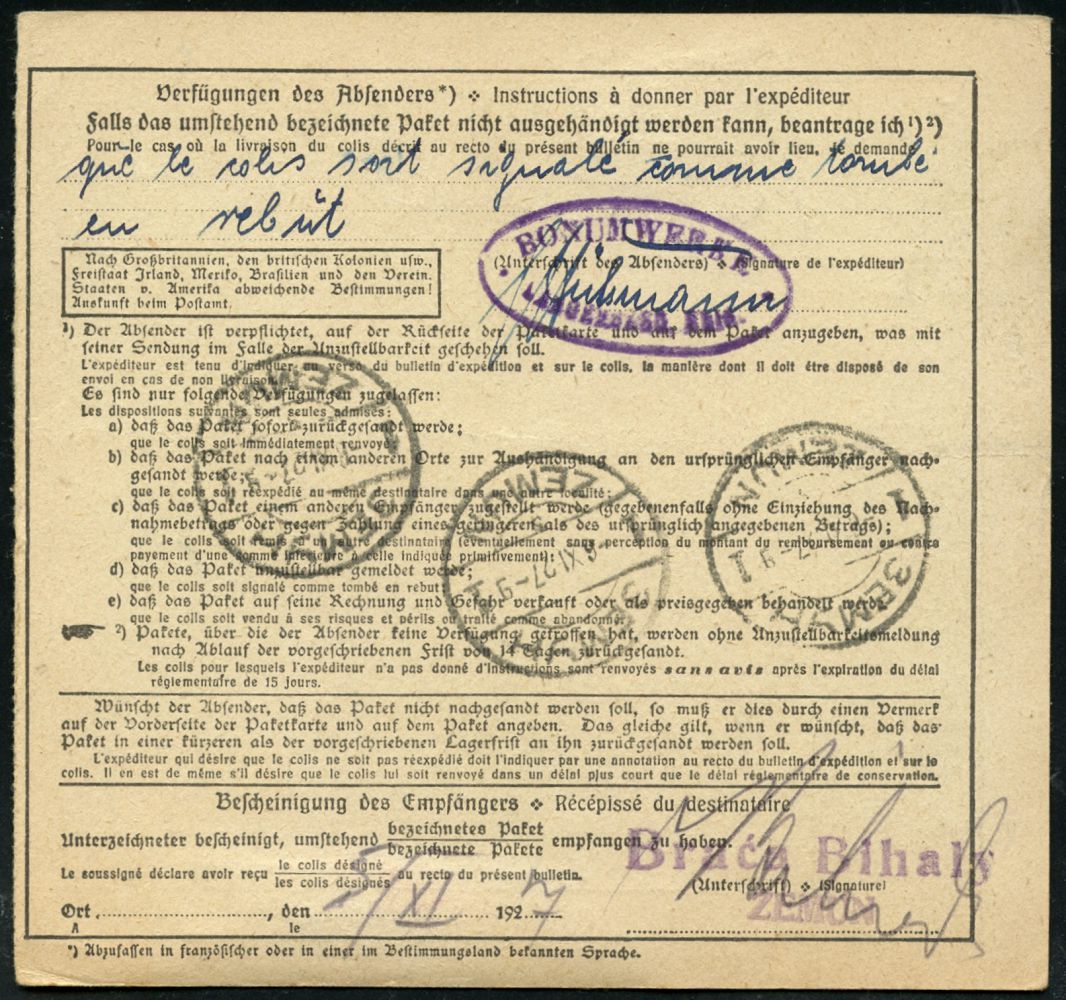 Verfügungen des Absenders*) ❖ Instructions à donner par l'expéditeur
Falls das umstehend bezeichnete Paket nicht ausgehändigt werden kann, beantrage ich ¹) ²)
Pour le cas où la livraison du colis décrit au recto du présent bulletin ne pourrait avoir lieu, je demande
que le colis soit signalé comme tombé
en rebût
BONUMWERKE
(Unterschrift des Absenders) ❖ (Signature de l'expéditeur)
Nach Großbritannien, den britischen Kolonien usw.,
Freistaat Irland, Mexiko, Brasilien und den Verein.
Staaten v. Amerika abweichende Bestimmungen!
Auskunft beim Postamt.
¹) Der Absender ist verpflichtet, auf der Rückseite der Paketkarte und auf dem Paket anzugeben, was mit
seiner Sendung im Falle der Unzustellbarkeit geschehen soll.
L'expéditeur est tenu d'indiquer au verso du bulletin d'expédition et sur le colis, la manière dont il doit être disposé de son
envoi en cas de non livraison.
Es sind nur folgende Verfügungen zugelassen:
Les dispositions suivantes sont seules admises:
a) daß das Paket sofort zurückgesandt werde;
que le colis soit immédiatement renvoyé;
b) daß das Paket nach einem anderen Orte zur Aushändigung an den ursprünglichen Empfänger nach-
gesandt werde;
que le colis soit réexpédié au même destinataire dans une autre localité;
c) daß das Paket einem anderen Empfänger zugestellt werde (gegebenenfalls ohne Einziehung des Nach-
nahmebetrags oder gegen Zahlung eines geringeren als des ursprünglich angegebenen Betrags);
que le colis soit remis à un autre destinataire (éventuellement sans perception du montant du remboursement ou contre
payement d'une somme inférieure à celle indiquée primitivement);
d) daß das Paket unzustellbar gemeldet werde;
que le colis soit signalé comme tombé en rebut;
e) daß das Paket auf seine Rechnung und Gefahr verkauft oder als preisgegeben behandelt werde.
que le colis soit vendu à ses risques et périls ou traité comme abandonné.
²) Pakete, über die der Absender keine Verfügung getroffen hat, werden ohne Unzustellbarkeitsmeldung
nach Ablauf der vorgeschriebenen Frist von 14 Tagen zurückgesandt.
Les colis pour lesquels l'expéditeur n'a pas donné d'instructions sont renvoyés sans avis après l'expiration du délai
réglementaire de 15 jours.
ZEMUN
ЗЕМУН
ZEMUN
6 XI.27-9
ЗЕМУН
ZEMUN
ЗЕМУН
Wünscht der Absender, daß das Paket nicht nachgesandt werden soll, so muß er dies durch einen Vermerk
auf der Vorderseite der Paketkarte und auf dem Paket angeben. Das gleiche gilt, wenn er wünscht, daß das
Paket in einer kürzeren als der vorgeschriebenen Lagerfrist an ihn zurückgesandt werden soll.
L'expéditeur qui désire que le colis ne soit pas réexpédié doit l'indiquer par une annotation au recto du bulletin d'expédition et sur le
colis. Il en est de même s'il désire que le colis lui soit renvoyé dans un délai plus court que le délai réglementaire de conservation.
Bescheinigung des Empfängers ❖ Récépissé du destinataire
Unterzeichneter bescheinigt, umstehend bezeichnetes Paket / bezeichnete Pakete empfangen zu haben.
Le soussigné déclare avoir reçu le colis désigné / les colis désignés au recto du présent bulletin.
Braća Bihaly
ZEMUN
(Unterschrift) ❖ (Signature)
Ort ........, den 5/XI 1927
A le
*) Abzufassen in französischer oder in einer im Bestimmungsland bekannten Sprache.